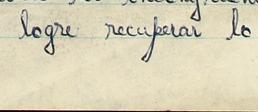 logre recuperar lo